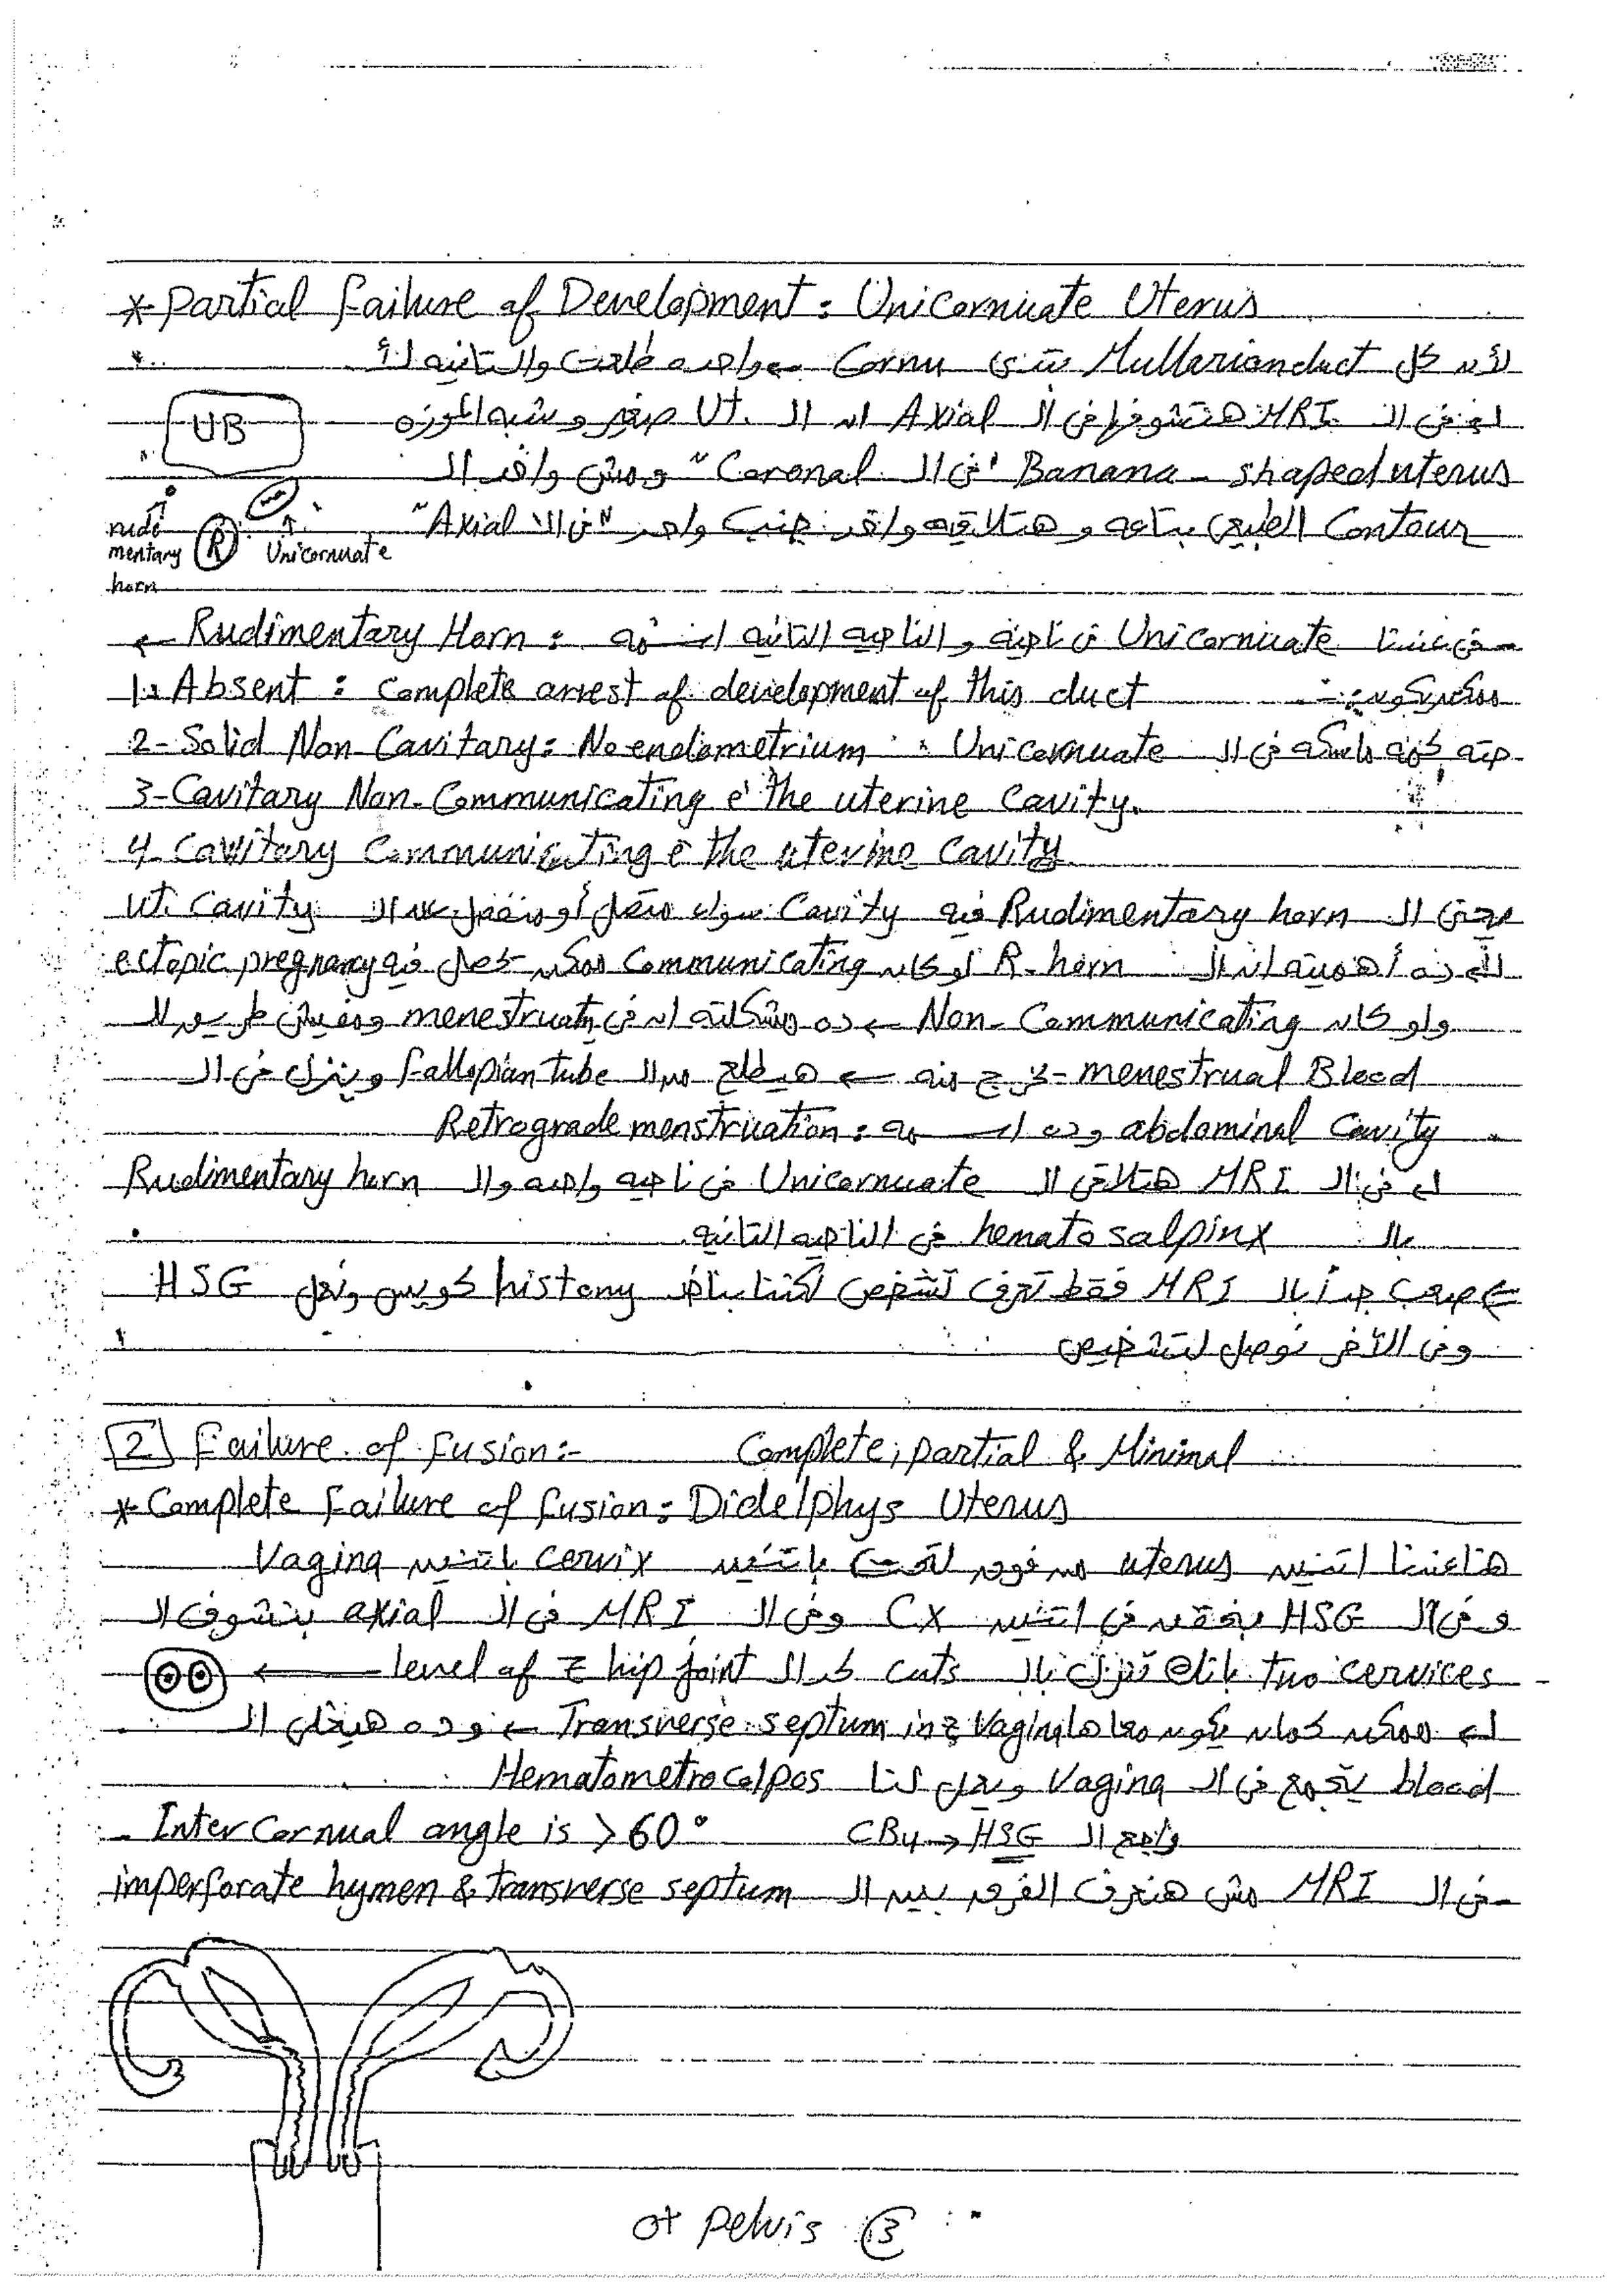 * Partial Failure of Development : Unicornuate Uterus
لأن كل Mullerian duct بتدى Cornu ← واحده طلعت والتانيه لأ
له فى الـ MRI هتشوفها فى الـ Axial ان الـ Ut. صغير وشبه الموزه
UB
Banana - shaped uterus "فى الـ Coronal" ومش واخد الـ
Contour الطبيعى بتاعه وهتلاقيه واخد جنب واحد "فى الـ Axial"
rudimentary horn
R
Unicornuate
- فى عندنا Unicornuate فى ناحية والناحيه التانيه اسمه : Rudimentary Horn ←
ممكن يكون :-
1. Absent : Complete arrest of development of this duct
2- Solid Non Cavitary : No endometrium حته كده ماسكه فى الـ Unicornuate
3- Cavitary Non-Communicating c̄ the uterine Cavity.
4- Cavitary Communicating c̄ the uterine Cavity
يعنى الـ Rudimentary horn فيه Cavity سواء متصل أو منفصل عن الـ Ut. Cavity
ده أهميته ان الـ R. horn لو كان Communicating ممكن يحصل فيه ectopic pregnany
ولو كان Non-Communicating ← ده مشكلته ان فى menestruatn ومفيش طريق للـ
menestrual Blood يخرج منه ← هيطلع من الـ Fallopian tube وينزل فى الـ
abdominal Cavity وده اسمه : Retrograde menstruation
له فى الـ MRI هتلاقى الـ Unicornuate فى ناحيه واحده والـ Rudimentary horn
بالـ hematosalpinx فى الناحيه التانيه.
صعب جداً بالـ MRI فقط تعرف تشخص لكننا بناخد history كويس ونعمل HSG
وفى الآخر نوصل لتشخيص
2 Failure of Fusion :- Complete, partial & Minimal
* Complete Failure of fusion : Didelphys Uterus
هنا عندنا اتنين uterus من فوق لتحت باتنين cervix باتنين Vagina
وفى الـ HSG بنحقن فى اتنين CX وفى الـ MRI فى الـ axial بتشوف الـ
two cervices بانك تنزل بالـ cuts عند الـ level of the hip joint ←
له ممكن كمان يكون معاها Transverse septum in the Vagina ← وده هيخلى الـ
blood يتجمع فى الـ Vagina ويعمل لنا Hematometrocolpos
- Inter Cornual angle is > 60° راجع الـ CB4 → HSG
- فى الـ MRI مش هنعرف الفرق بين الـ imperforate hymen & transverse septum
Pelvis 3